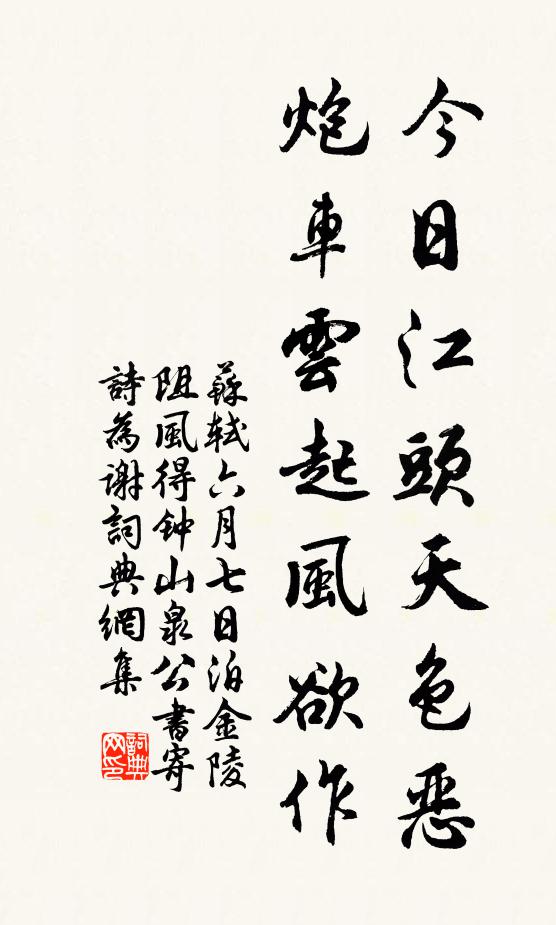 今日江頭天色惡
炮車雲起風欲作
蘇軾六月七日泊金陵
阻風得钟山泉公書寄
詩為謝詞典網集
詞典
网印